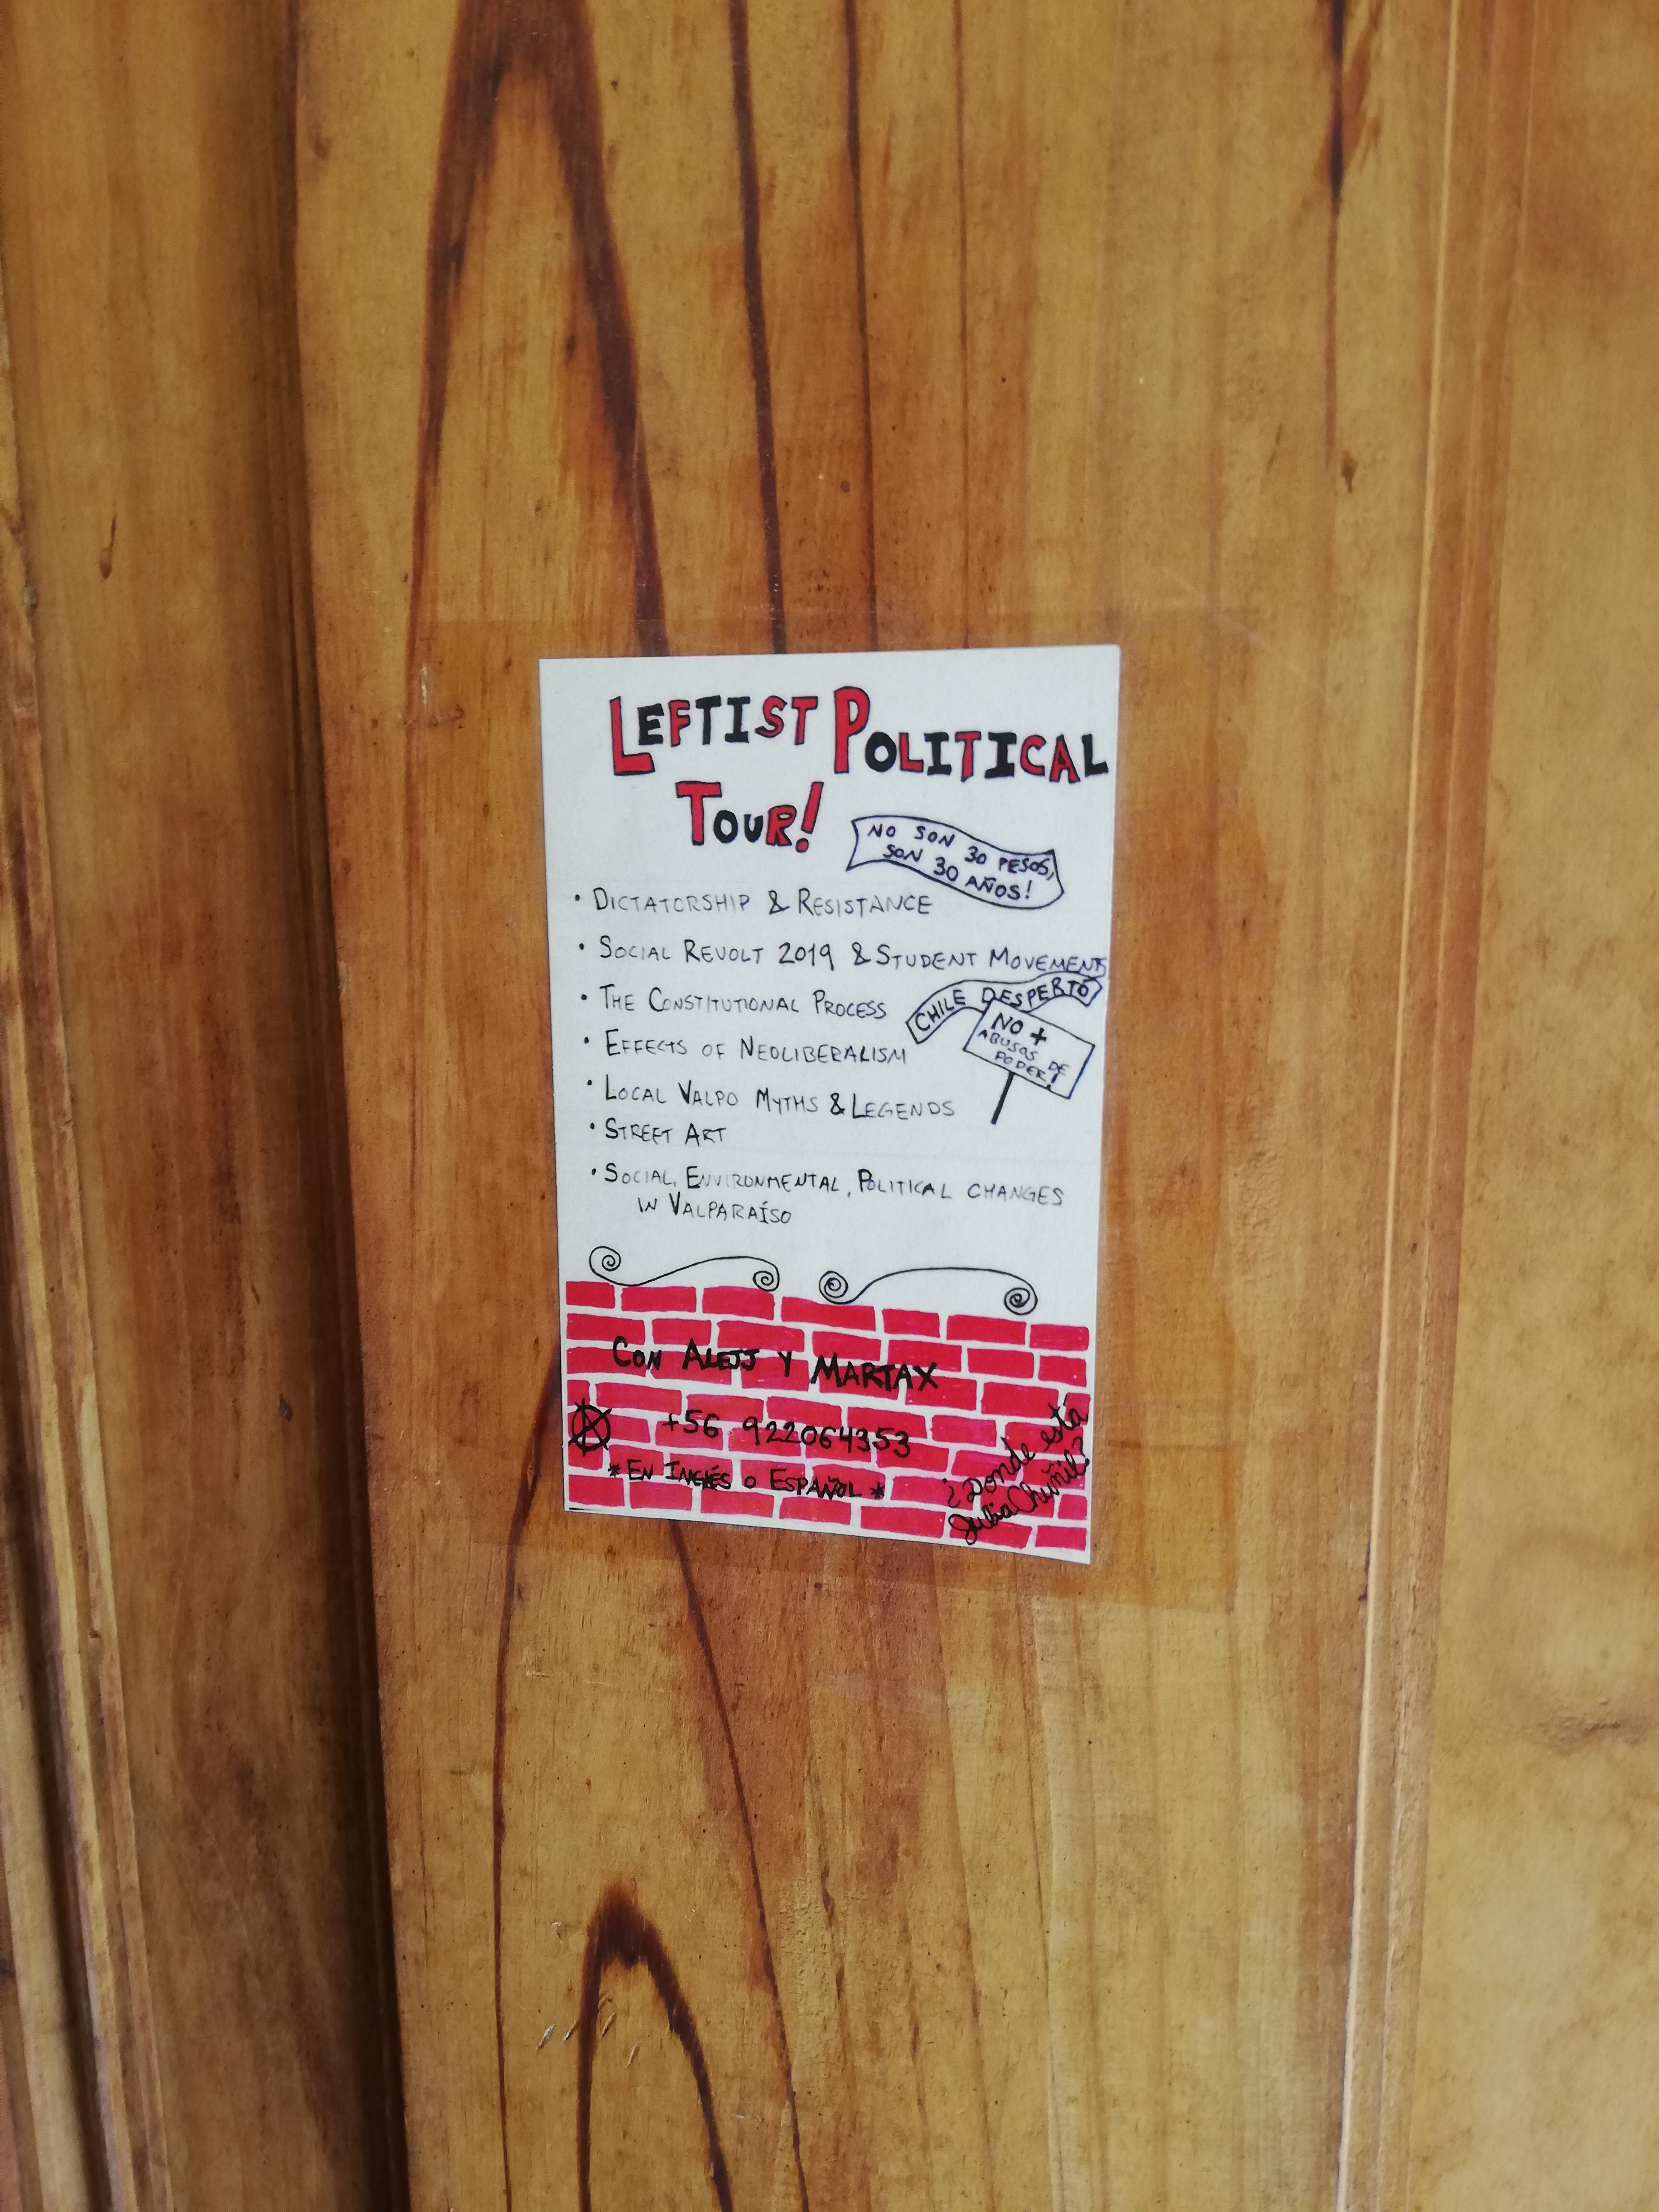 LEFTIST POLITICAL
TOUR!
NO SON 30 PESOS,
SON 30 AÑOS!
• DICTATORSHIP & RESISTANCE
• SOCIAL REVOLT 2019 & STUDENT MOVEMENTS
• THE CONSTITUTIONAL PROCESS
CHILE DESPERTÓ
NO +
ABUSOS DE
PODER!
• EFFECTS OF NEOLIBERALISM
• LOCAL VALPO MYTHS & LEGENDS
• STREET ART
• SOCIAL, ENVIRONMENTAL, POLITICAL CHANGES
IN VALPARAÍSO
CON ALEJJ Y MARTAX
A +56 922064353
* EN INGLÉS O ESPAÑOL *
¿Donde está
Julia Chuñil?